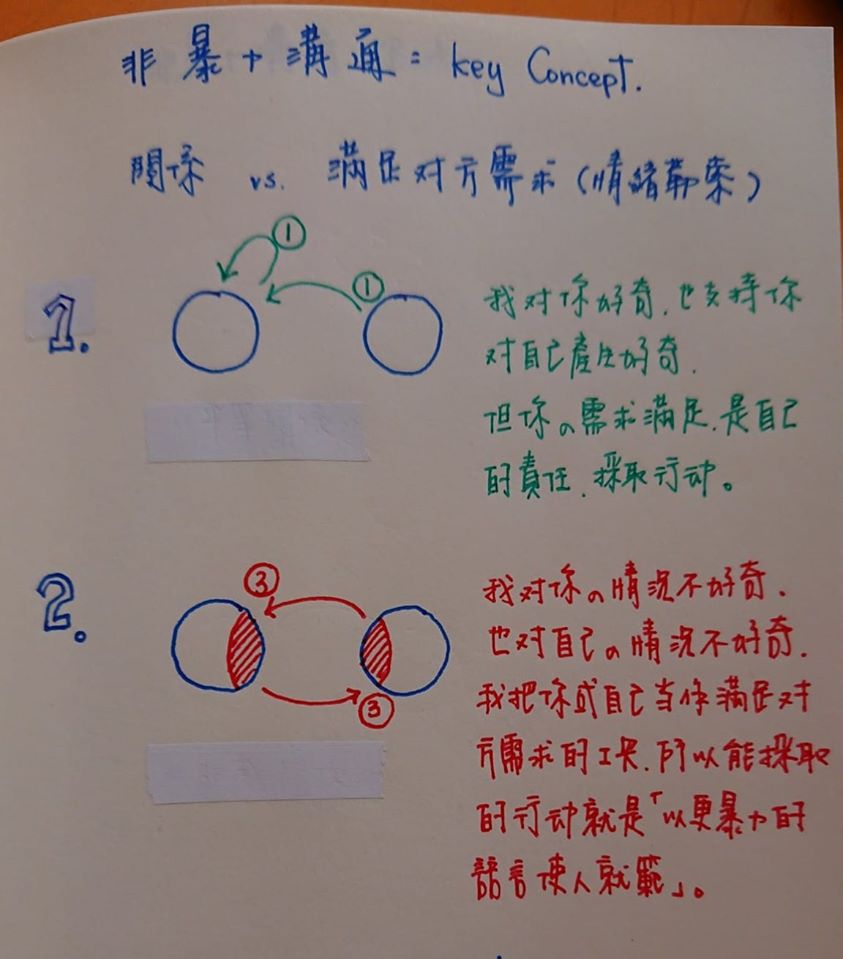 非暴力溝通：key Concept.
関係 vs. 満足对方需求（情緒勒索）
①
1.
①
我对你好奇，也支持你
对自己產生好奇.
但你の需求満足，是自己
的責任，採取行动。
2.
③
③
我对你の情況不好奇.
也对自己の情況不好奇.
我把你或自己当作満足对
方需求的工具，所以能採取
的行动就是「以更暴力的
語言使人就範」。